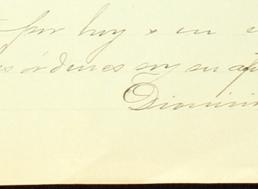 por hoy y en
órdenes soy su af
Dionisi